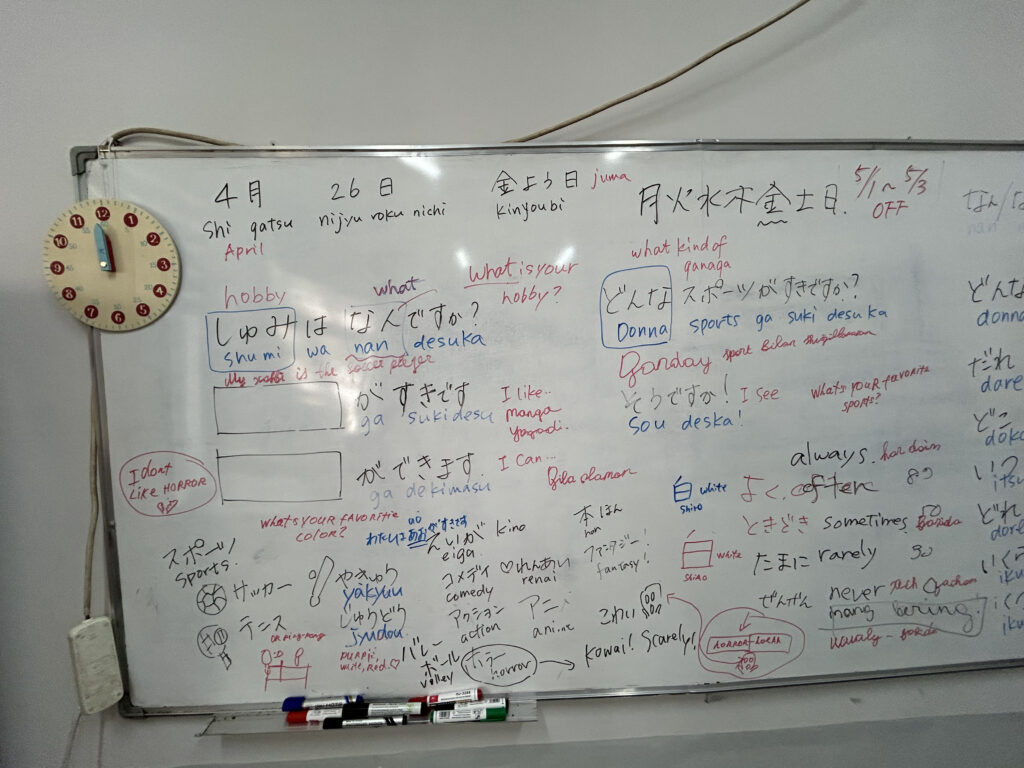 4月 26日 金よう日 juma
Shi gatsu nijyu roku nichi kinyoubi
April
月火水木金土日. 5/1~5/3
OFF
hobby what What is your
hobby?
しゅみは なんですか?
shumi wa nan desuka
is the soccer player
がすきです I like..
ga sukidesu manga
yoqadi.
ができます I can...
ga dekimasu
I dont
Like HORROR
what kind of
qanaqa
どんな スポーツがすきですか?
Donna sports ga suki desuka
Qanday sport bilan
そうですか! I see
sou deska!
What's your favorite
sports?
always.
白 white よく often 80
shiro
ときどき sometimes 50
white たまに rarely 30
shiro
ぜんぜん never
What's your favoritie
color?
ao
わたしは あおがすきです
スポーツ!
sports!
サッカー
テニス
やきゅう
yakyuu
じゅうどう
jyudou
white, red.
えいが kino
eiga
コメディ
comedy
アクション
action
バレー
ボール
volley
ホラー
horror
本 ほん
hon
ファンタジー!
fantasy!
れんあい
renai
アニメ
anime
こわい
Kowai! Scarely!
なん/な
nan
どんな
donna
だれ
dare
どこ
doko
いつ
itsu
どれ
dore
いくら
iku
いく
iku
12 1 2 3 4 5 6 7 8 9 10 11